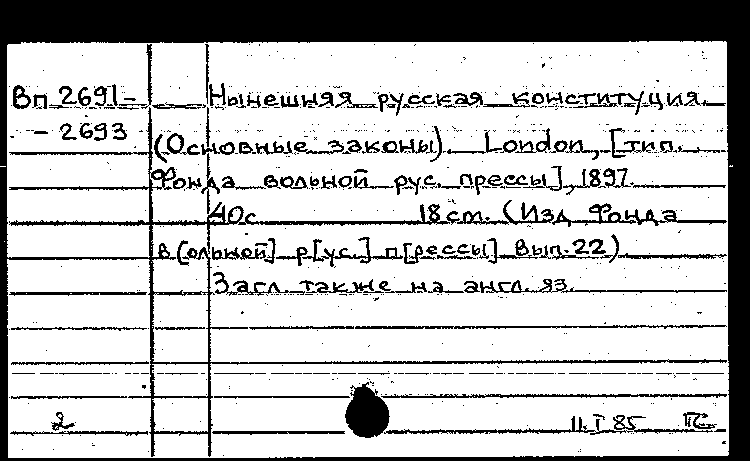 Вп 2691- Нынешняя русская конституция.
- 2693 (Основные законы). London, [тип.
Фонда вольной рус. прессы], 1897.
40с 18 cm. (Изд Фонда
в[ольной] р[ус.] п[рессы] Вып. 22)
Загл. также на англ. яз.
2 11.I 85